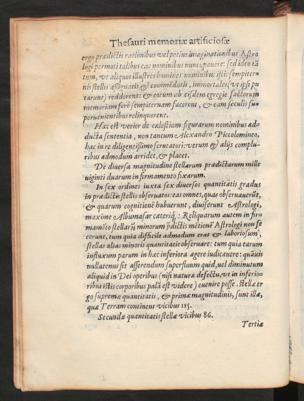 Thesauri memoriæ artificiosæ
ergo prædictis rationibus vel potius imaginationibus Astro
logi permoti talibus eas nominibus nuncupavere: sed ideo
tum, vt aliquot illustres homines nominibus istis sempiternis
nis stellis assignatis & commodatis, immortales, vt ipsi pu
tarunt redderent: & eorum ab eisdem egregie factorum
memoriam ferè sempiternam facerent, & eam seculis su
peruenientibus relinquerent.
Hæc est verior de cælestium figurarum nominibus ad
ducta sententia, non tantum Alexandro Piccolomineo,
hac in re diligentissimo scrutatori: verum & alijs complu
ribus admodum arridet, & placet.
De diuersa magnitudine stellarum prædictarum mille
viginti duarum in firmamento fixarum.
In sex ordines iuxta sex diuersos quantitatis gradus
in prædictis stellis obseruatos eas omnes, quas obseruauerūt,
& quarum cognitione habuerunt, diuiserunt Astrologi,
maxime Albumasar cæteriq;: Reliquarum autem in fir
mamēto stellarū minorum pdictis mētionē Astrologi non fe
cerunt, tum quia difficile admodum erat & laboriosum,
stellas alias minoris quantitatis obseruare: tum quia earum
influxum parum in hæc inferiora agere iudicauere: quāuis
nullatenus sit asserendum superfluum quid, vel diminutum
aliquid in Dei operibus (nisi natura defectu, vt in inferio
ribus istis corporibus palā est videre) euenire posse. stellæ er
go supremæ quantitatis, & primæ magnitudinis, sunt illæ,
quæ Terram continent vicibus 115.
Secundæ quantitatis stellæ vicibus 86.
Tertiæ